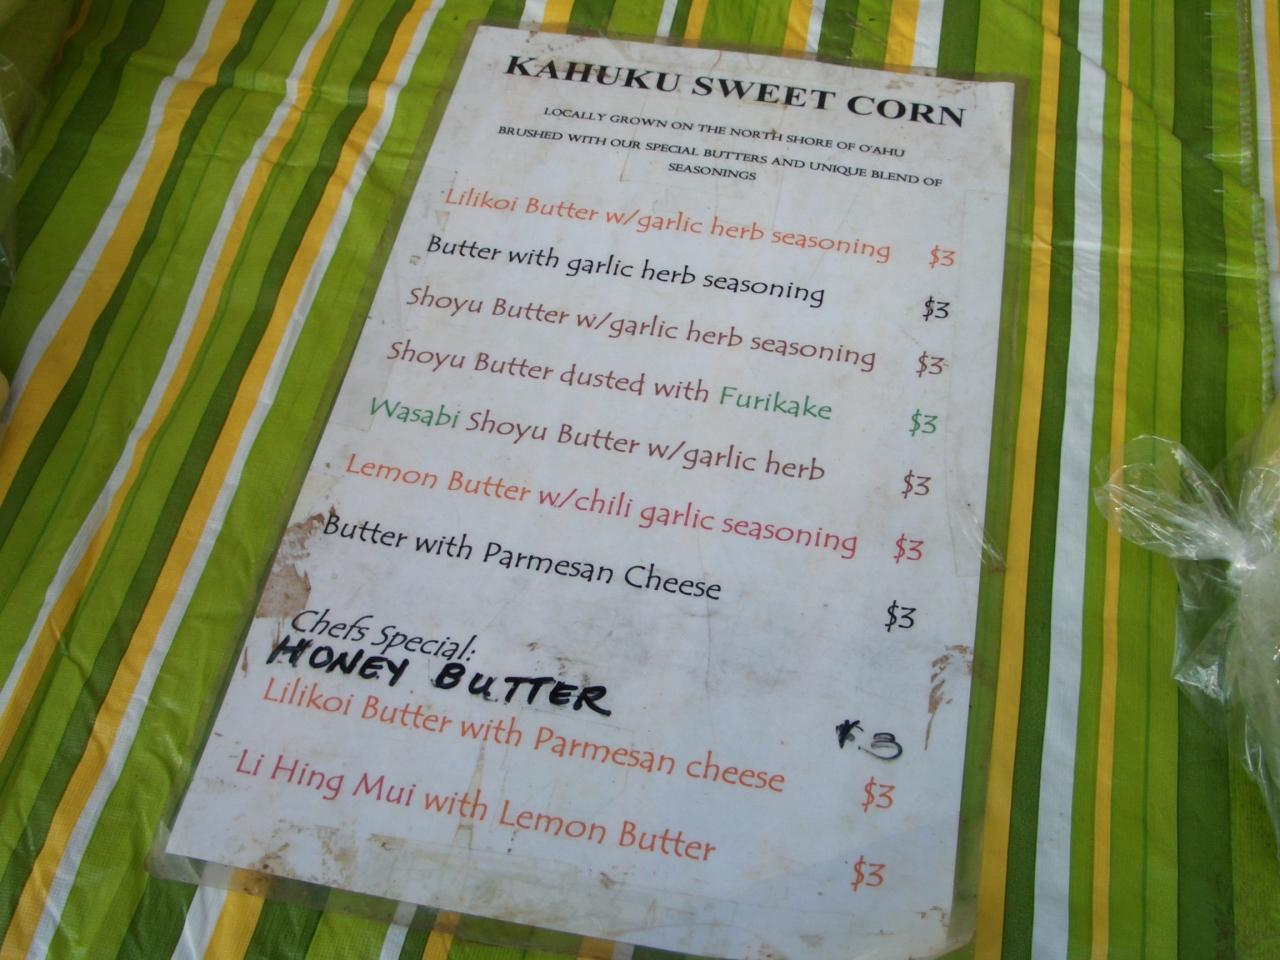 KAHUKU SWEET CORN
LOCALLY GROWN ON THE NORTH SHORE OF O'AHU
BRUSHED WITH OUR SPECIAL BUTTERS AND UNIQUE BLEND OF
SEASONINGS
Lilikoi Butter w/garlic herb seasoning $3
Butter with garlic herb seasoning $3
Shoyu Butter w/garlic herb seasoning $3
Shoyu Butter dusted with Furikake $3
Wasabi Shoyu Butter w/garlic herb $3
Lemon Butter w/chili garlic seasoning $3
Butter with Parmesan Cheese $3
Chefs Special:
HONEY BUTTER $3
Lilikoi Butter with Parmesan cheese $3
Li Hing Mui with Lemon Butter $3